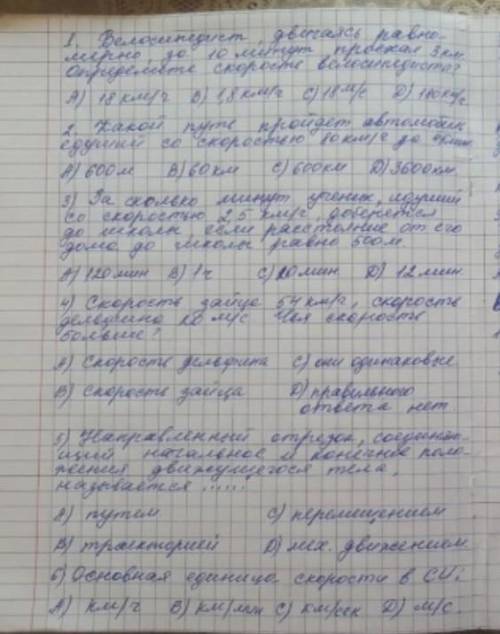 1. Велосипедист, двигаясь равно-
мерно за 10 минут, проехал 3 км.
Определите скорость велосипедиста?
А) 18 км/ч В) 1,8 км/ч С) 18 м/с D) 180 км/с
2. Какой путь пройдет автомобиль
едущий со скоростью 80 км/ч за
А) 600 м В) 60 км С) 600 км D) 3600 км.
3) За сколько минут ученик, идущий
со скоростью 2,5 км/ч, доберется
до школы, если расстояние от его
дома до школы равно 500 м.
А) 120 мин В) 1 ч С) 20 мин D) 12 мин
4) Скорость зайца 54 км/ч, скорость
дельфина 20 м/с Чья скорость
больше?
А) Скорость дельфина С) они одинаковые
В) Скорость зайца D) правильного
ответа нет.
5) Направленный отрезок, соединя-
ющий начальное и конечное поло-
жения движущегося тела,
называется ......
А) путем С) перемещением
В) траекторией D) мех. движением
6) Основная единица скорости в СИ:
А) км/ч В) км/мин С) км/сек D) м/с.